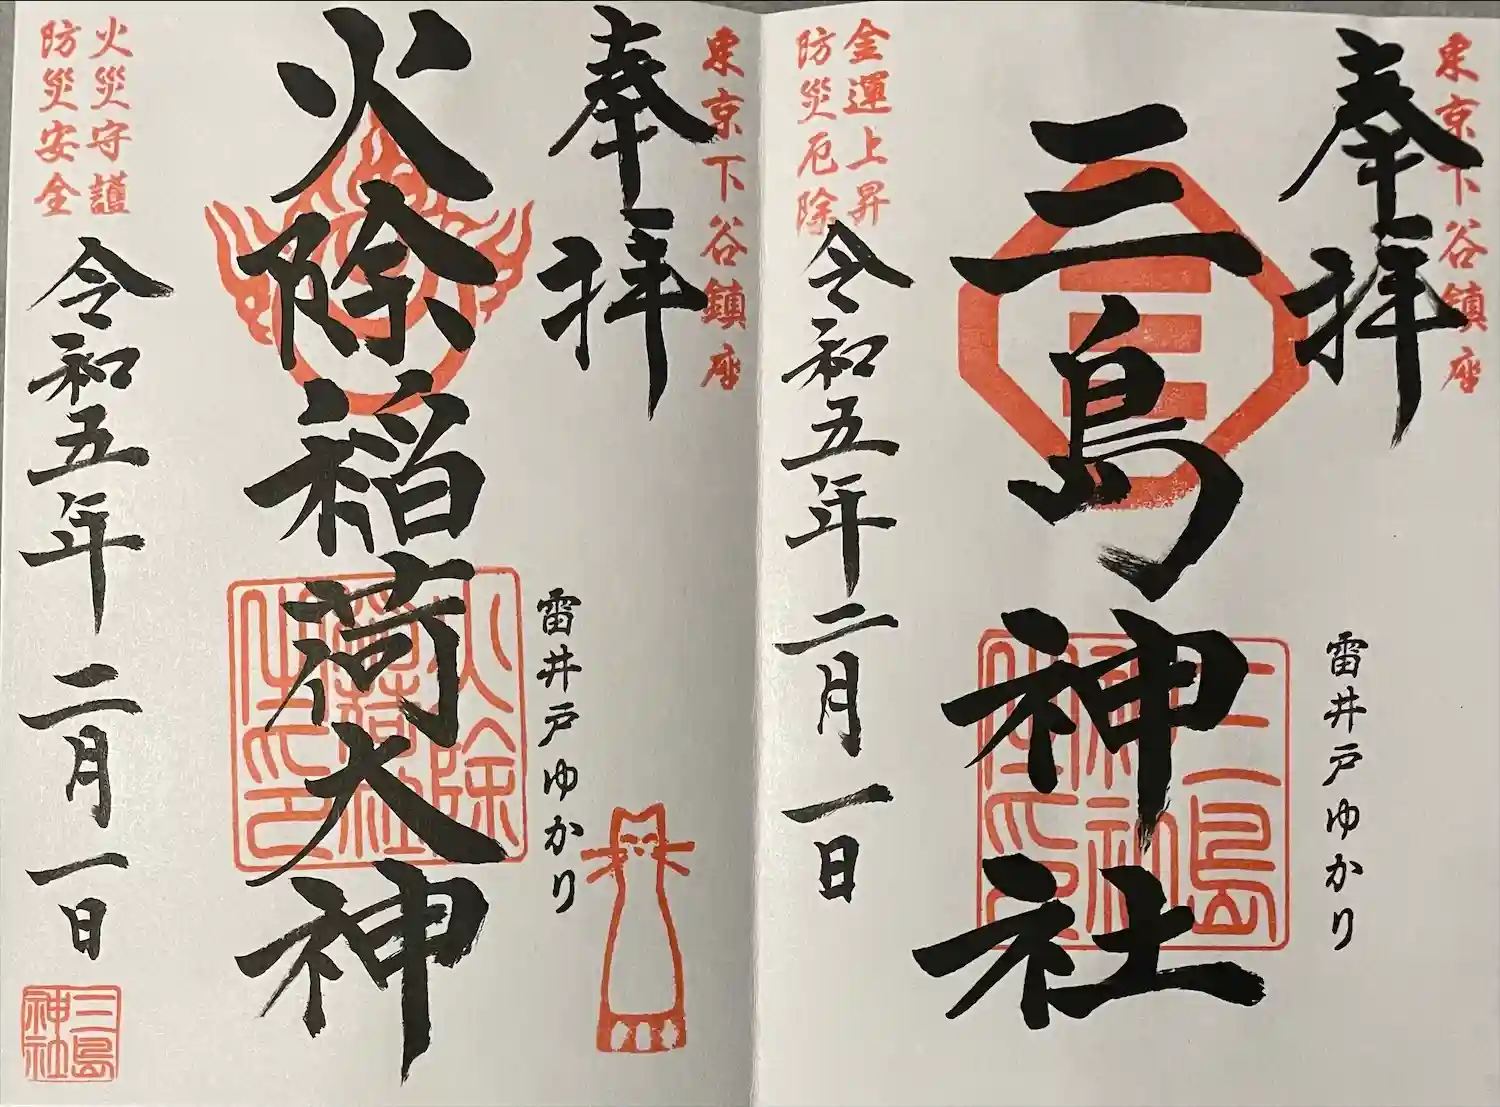 東京下谷鎮座
奉拝
三島神社
三
三島神社之印
雷井戸ゆかり
金運上昇
防災厄除
令和五年二月一日
東京下谷鎮座
奉拝
火除稲荷大神
雷井戸ゆかり
火災守護
防災安全
令和五年二月一日
三島神社